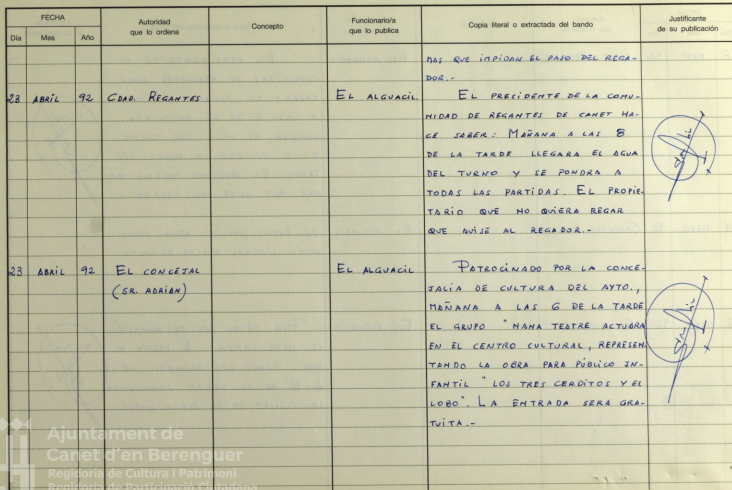 FECHA
Autoridad
que lo ordena
Concepto
Funcionario/a
que lo publica
Copia literal o extractada del bando
Justificante
de su publicación
Día Mes Año
MAS QUE IMPIDAN EL PASO DEL REGA-
DOR.-
23 ABRIL 92 CDAD. REGANTES EL ALGUACIL. EL PRESIDENTE DE LA COMU-
NIDAD DE REGANTES DE CANET HA-
CE SABER: MAÑANA A LAS 8
DE LA TARDE LLEGARA EL AGUA
DEL TURNO Y SE PONDRA A
TODAS LAS PARTIDAS. EL PROPIE-
TARIO QUE NO QUIERA REGAR
QUE AVISE AL REGADOR.-
23 ABRIL 92 EL CONCEJAL EL ALGUACIL PATROCINADO POR LA CONCE-
(SR. ADRIAN) JALIA DE CULTURA DEL AYTO.,
MAÑANA A LAS 6 DE LA TARDE
EL GRUPO "NANA TEATRE ACTUARA
EN EL CENTRO CULTURAL, REPRESEN-
TANDO LA OBRA PARA PÚBLICO IN-
FANTIL "LOS TRES CERDITOS Y EL
LOBO". LA ENTRADA SERA GRA-
TUITA.-
Ajuntament de
Canet d'en Berenguer
Regidoria de Cultura i Patrimoni
Regidoria de Participació Ciutadana